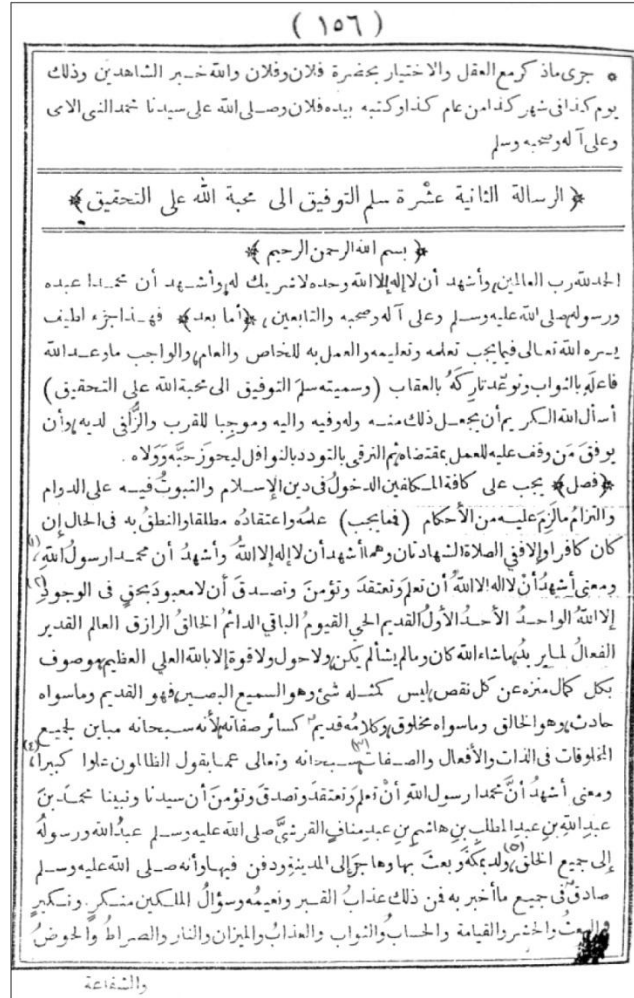 (١٥٦)
* جرى ماذكر مع العقل والاختيار بحضرة فلان وفلان والله خير الشاهدين وذلك
يوم كذا فى شهر كذا من عام كذا وكتبه بيده فلان وصلى الله على سيدنا محمد النبى الامى
وعلى آله وصحبه وسلم
﴿الرسالة الثانية عشْرة سلم التوفيق الى محبة الله على التحقيق﴾
﴿بسم الله الرحمن الرحيم﴾
الحمد لله رب العالمين، وأشهد أن لا إله إلا الله وحده لا شريك له، وأشهد أن محمدا عبده
ورسوله، صلى الله عليه وسلم وعلى آله وصحبه والتابعين، ﴿أما بعد﴾ فهذا جزء لطيف
يسره الله تعالى فيما يجب تعلمه وتعليمه والعمل به للخاص والعام، والواجب ما وعد الله
فاعلَه بالثواب وتوعّد تاركَهُ بالعقاب (وسميته سلم التوفيق الى محبة الله على التحقيق)
أسأل الله الكريم أن يجعل ذلك منه وله وفيه واليه وموجبا للقرب والزُّلفى لديه، وأن
يوفق مَن وقف عليه للعمل بمقتضاه ثم الترقى بالتودد بالنوافل ليحوز حبَّه وَوَلاه.
﴿فصل﴾ يجب على كافة المكلفين الدخولُ فى دين الإسلام والثبوتُ فيه على الدوام
والتزامُ ما لزِمَ عليه من الأحكام (فمما يجب) علمُه واعتقادُه مطلقا والنطقُ به فى الحال إن
كان كافرا وإلا ففي الصلاة الشهادتان وهما أشهد أن لا إله إلا اللهُ وأشهدُ أن محمدا رسولُ الله، (١)
ومعنى أشهدُ أنْ لا إله إلا اللهُ أن تعلمَ وتعتقدَ وتؤمنَ وتصدقَ أن لا معبودَ بحقٍ فى الوجودِ (٢)
إلا اللهُ الواحدُ الأحدُ الأولُ القديم الحي القيومُ الباقي الدائمُ الخالقُ الرازق العالم القدير
الفعالُ لما يريد، ما شاء الله كان وما لم يشأ لم يكن، ولا حول ولا قوة إلا بالله العلي العظيم، موصوف
بكل كمال منزه عن كل نقص، ليس كمثله شئ وهو السميع البصير، فهو القديم وما سواه
حادث، وهو الخالق وما سواه مخلوق، وكلامُه قديمٌ كسائر صفاته، لأنه سبحانه مباين لجميع
المخلوقات فى الذات والأفعال والصفات، (٣) سبحانه وتعالى عما يقول الظالمون علوا كبيرا، (٤)
ومعنى أشهدُ أنَّ محمدا رسول الله أنْ تعلمَ وتعتقدَ وتصدقَ وتؤمنَ أن سيدنا ونبينا محمدَ بنَ
عبدِ اللهِ بنِ عبدِ المطلبِ بنِ هاشمِ بنِ عبدِ منافٍ القرشيَّ صلى الله عليه وسلم عبدُ الله ورسولُهُ
إلى جميع الخلق، (٥) ولد بمكةَ وبعث بها وهاجر إلى المدينةِ ودفن فيها، وأنه صلى الله عليه وسلم
صادقٌ فى جميع ما أخبر به فمن ذلك عذابُ القبر ونعيمُه وسؤالُ الملكين منكرٍ ونكيرٍ
والبعثُ والحشر والقيامة والحسابُ والثواب والعذابُ والميزان والنار والصراطُ والحوضُ
والشفاعة